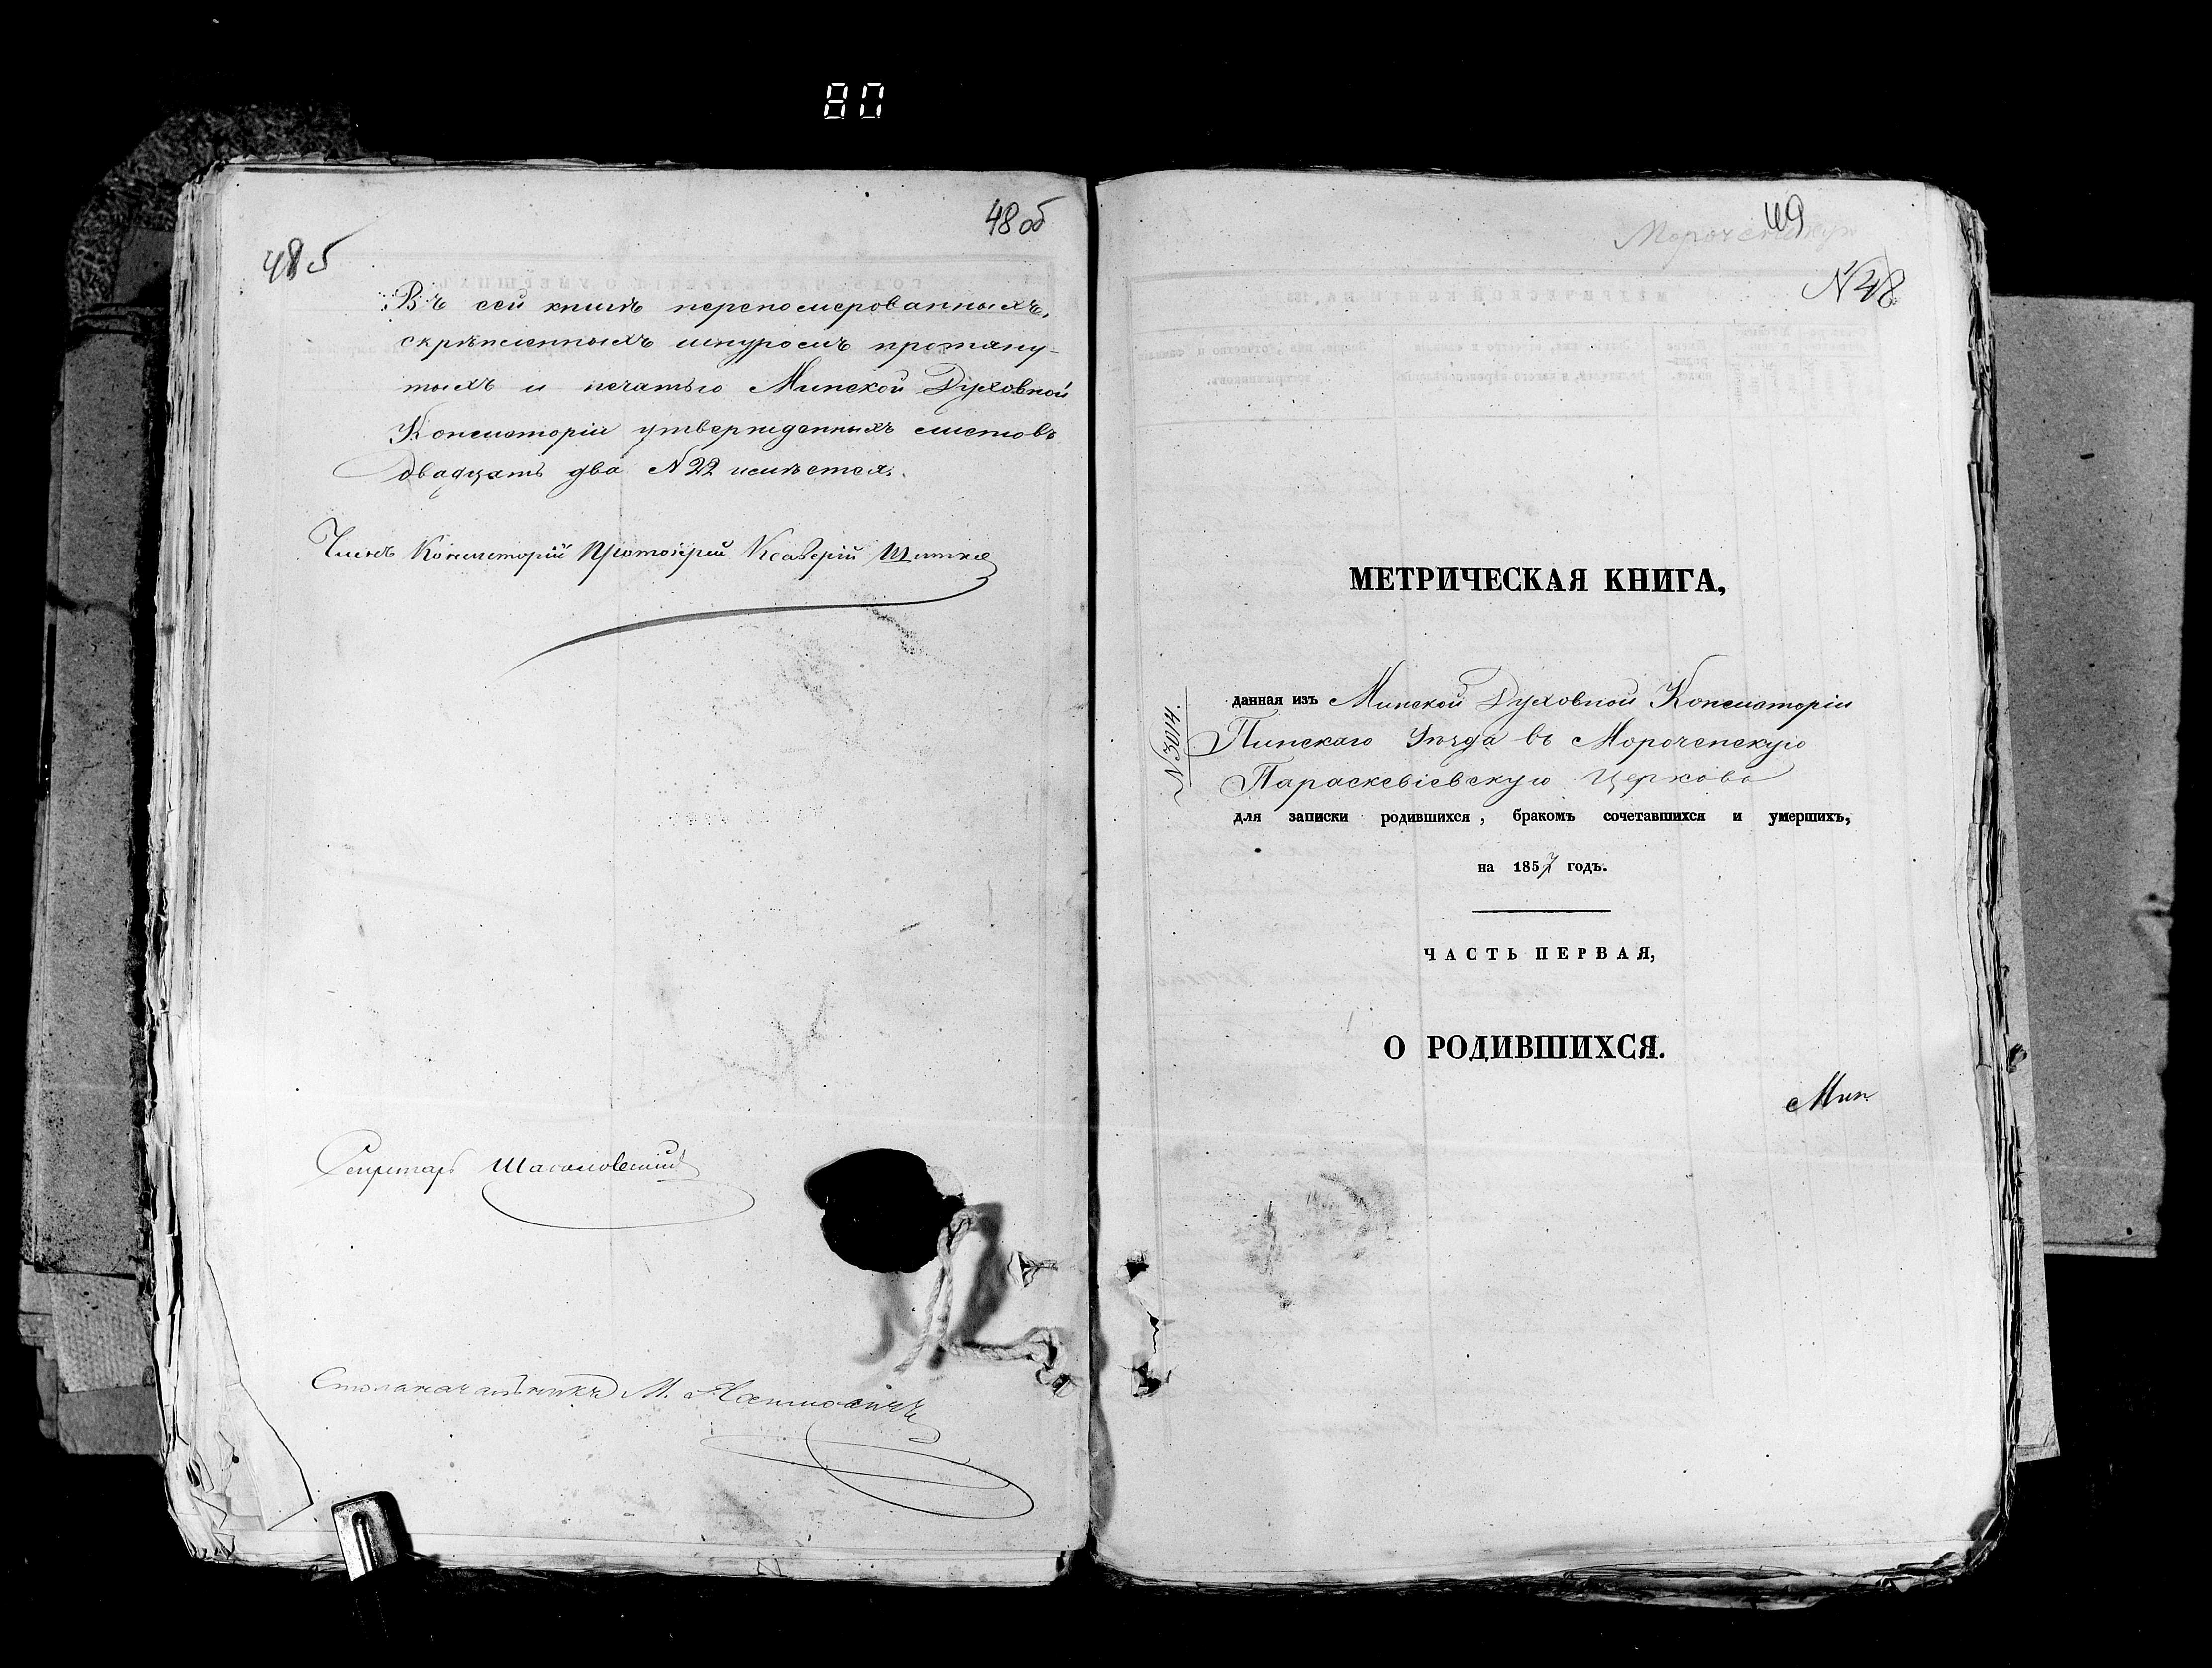 80
48об
485
Въ сей книгѣ перепомерованныхъ,
скрѣпленныхъ шнуромъ протяну-
тыхъ и печатью Минской Духовной
Консисторіи утвержденныхъ листовъ
двадцать два N 22 имѣется.
Членъ Консисторіи Протоіерей Ксаверій
Секретарь
Столоначальникъ М.
49
Мороченскую
N 48
МЕТРИЧЕСКАЯ КНИГА,
N 3014.
данная изъ Минской Духовной Консисторіи
Пинскаго Уѣзда въ Мороченскую
Параскевіевскую Церковь
для записки родившихся, бракомъ сочетавшихся и умершихъ,
на 1857 годъ.
ЧАСТЬ ПЕРВАЯ,
О РОДИВШИХСЯ.
Мин